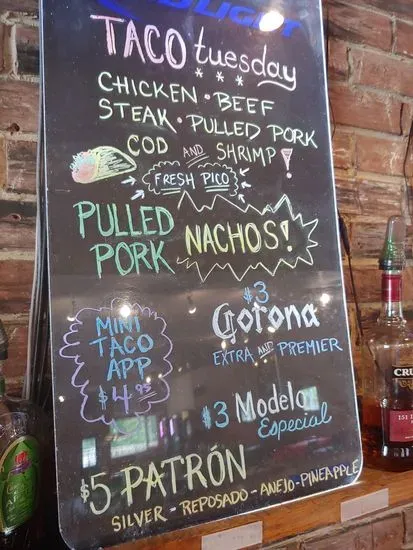 BUD LIGHT
TACO tuesday
* * *
CHICKEN • BEEF
STEAK • PULLED PORK
COD AND SHRIMP!
FRESH PICO
PULLED
PORK
NACHOS!
MINI
TACO
APP
$4.95
$3
Corona
EXTRA AND PREMIER
$3 Modelo
Especial
$5 PATRÓN
SILVER - REPOSADO - ANEJO - PINEAPPLE
CRU
151